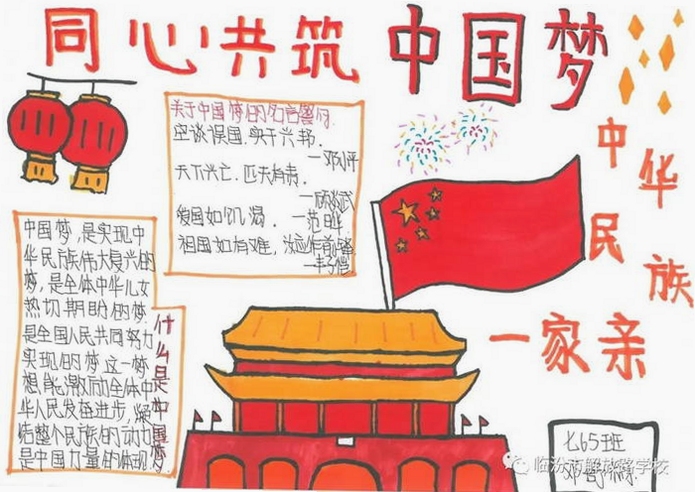 同心共筑 中国梦
关于中国梦的名言警句
空谈误国,实干兴邦
—邓小平
天下兴亡,匹夫有责.
—顾炎武
爱国如饥渴. —范晔
祖国如有难,汝应作前锋
中华民族
一家亲
什么是中国梦
中国梦,是实现中
华民族伟大复兴的
梦,是全体中华儿女
热切期盼的梦
是全国人民共同努力
实现的梦这一梦
想,能激励全体中
华人民发奋进步,凝
结整个民族的动力
是中国力量的体现.
65班
临汾市解放路学校